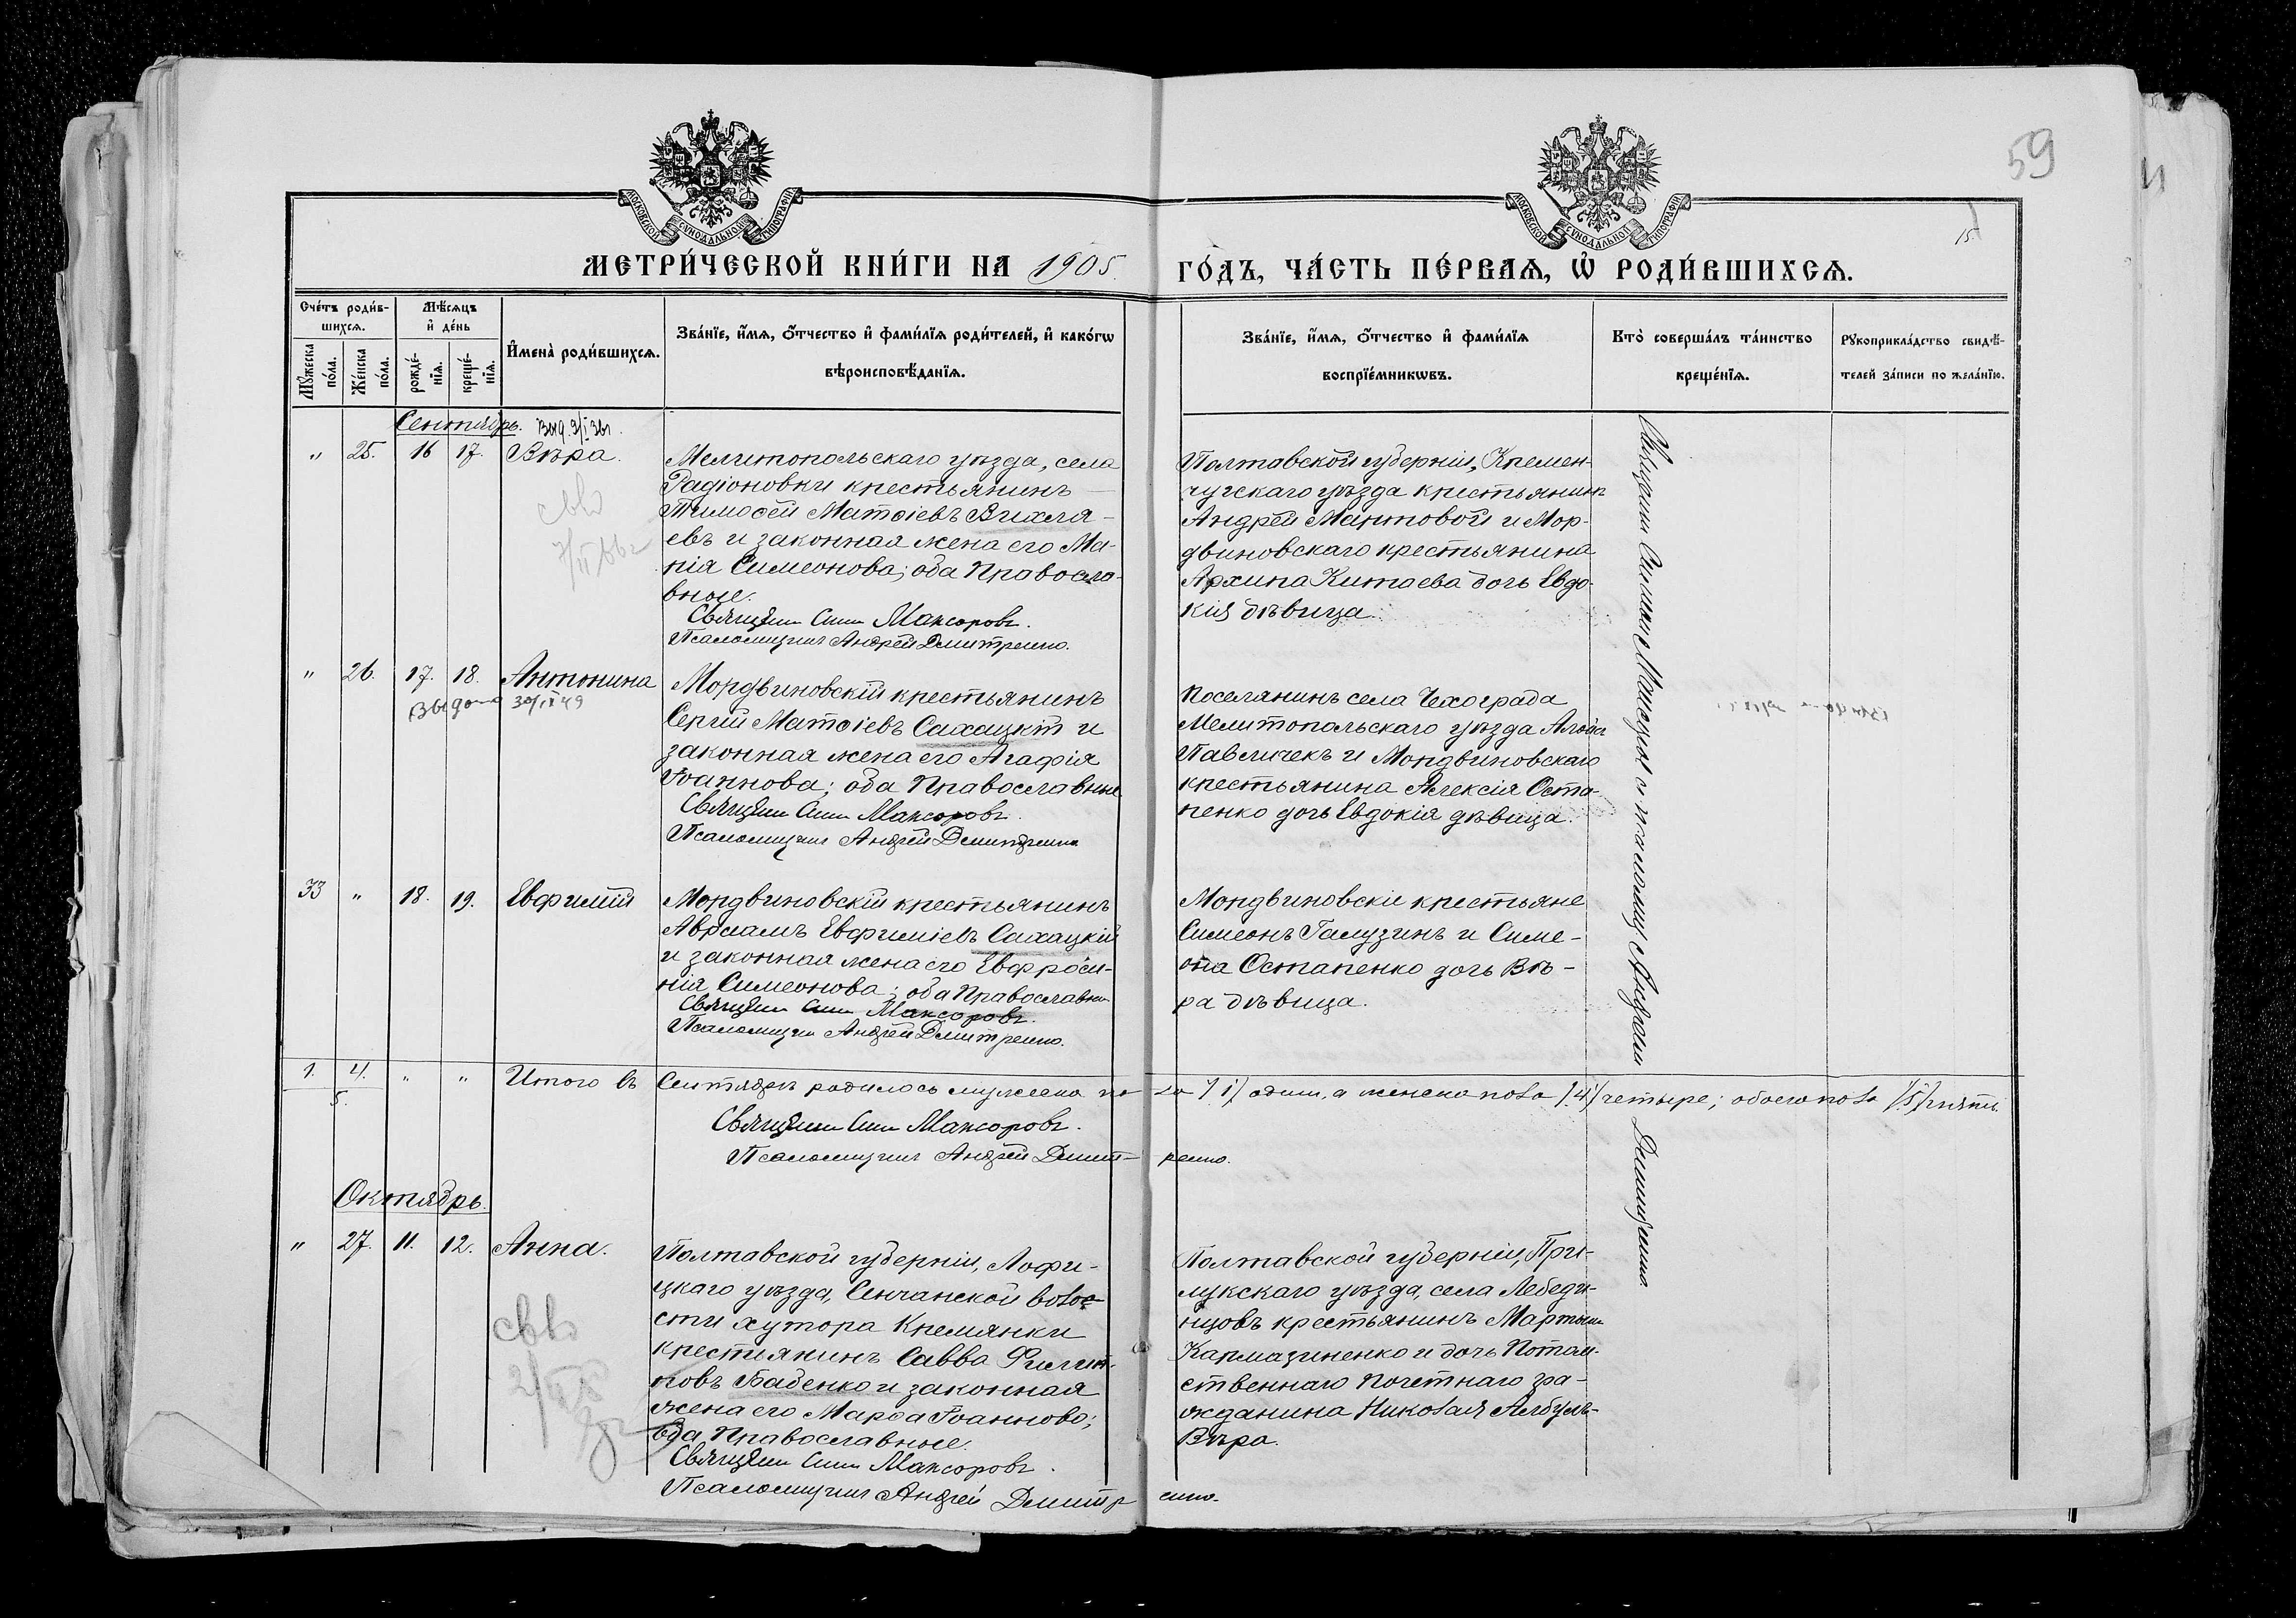 59
15
МОСКОВСКОЙ СѴНОДАЛЬНОЙ ТИПОГРАФІИ
МОСКОВСКОЙ СѴНОДАЛЬНОЙ ТИПОГРАФІИ
МЕТРИ́ЧЕСКОЙ КНИ́ГИ НА 1905 ГО́ДЪ, ЧА́СТЬ ПЕ́РВАѦ, Ѡ РОДИ́ВШИХСѦ.
Сче́тъ роди́в-
шихсѧ.
Мꙋжеска по́ла.
Же́нска по́ла.
Мѣ́сѧцъ
и҆ де́нь
рожде́-
нїѧ.
креще́-
нїѧ.
И҆мена̀ роди́вшихсѧ.
Зва́нїе, и҆́мѧ, ѻ҆́тчество и҆ фами́лїѧ роди́телей, и҆ како́гѡ
вѣроисповѣ́данїѧ.
Зва́нїе, и҆́мѧ, ѻ҆́тчество и҆ фами́лїѧ
воспрїе́мникѡвъ.
Кто̀ соверша́лъ та́инство
креще́нїѧ.
Рꙋкоприкла́дство свидѣ́-
телей за́писи по жела́нїю.
Сентябрь.
" 25. 16 17. Вѣра.
Мелитопольскаго уѣзда, села
Радіоновки крестьянинъ
Тимоѳей Матѳіевъ Вихля-
евъ и законная жена его Ма-
рія Симеонова; оба Правосла-
вные.
Священ Сим Максоровъ.
Псаломщикъ Андрей Дмитренко.
Полтавской губерніи, Кремен-
чугскаго уѣзда крестьянинъ
Андрей Мантовой и Мор-
двиновскаго крестьянина
Архипа Китаева дочь Евдо-
кія дѣвица.
" 26. 17. 18. Антонина
Выдано 30/IX 49
Мордвиновскій крестьянинъ
Сергій Матѳіевъ Сахацкій и
законная жена его Агафія
Іоаннова; оба Православные
Священ Сим Максоровъ.
Псаломщикъ Андрей Дмитренко
Поселянинъ села Чехограда
Мелитопольскаго уѣзда
Павличекъ и Мордвиновскаго
крестьянина Алексія Оста-
пенко дочь Евдокія дѣвица.
33 " 18. 19. Евфимій
Мордвиновскій крестьянинъ
Авраамъ Евфиміевъ Сахацкій
и законная жена его Евфроси-
нія Симеонова; оба Православные
Священ Сим Максоровъ.
Псаломщикъ Андрей Дмитренко.
Мордвиновскіе крестьяне
Симеонъ Галузинъ и Симе-
она Остапенко дочь Вѣ-
ра дѣвица.
Священникъ Симеонъ Максоровъ съ псаломщ Андреемъ Дмитренко
1. 4. " " Итого въ Сентябрѣ родилось мужеска пола /1/ одинъ, а женска пола /4/ четыре; обоего пола /5/ пять.
5.
Священ Сим Максоровъ.
Псаломщикъ Андрей Дмитренко.
Октябрь.
" 27. 11. 12. Анна.
Полтавской губерніи, Лофи-
цкаго уѣзда, Сенчанской волос-
сти хутора Кремянки
крестьянинъ Савва Филип-
повъ Бабенко и законная
жена его Марѳа Іоаннова;
оба Православные.
Священ Сим Максоровъ.
Псаломщикъ Андрей Дмитренко.
Полтавской губерніи, При-
лукскаго уѣзда, села Лебеди-
нцовъ крестьянинъ Мартынъ
Кармазиненко и дочь Потом-
ственнаго почетнаго гра-
жданина Николая Албулъ-
Вѣра.